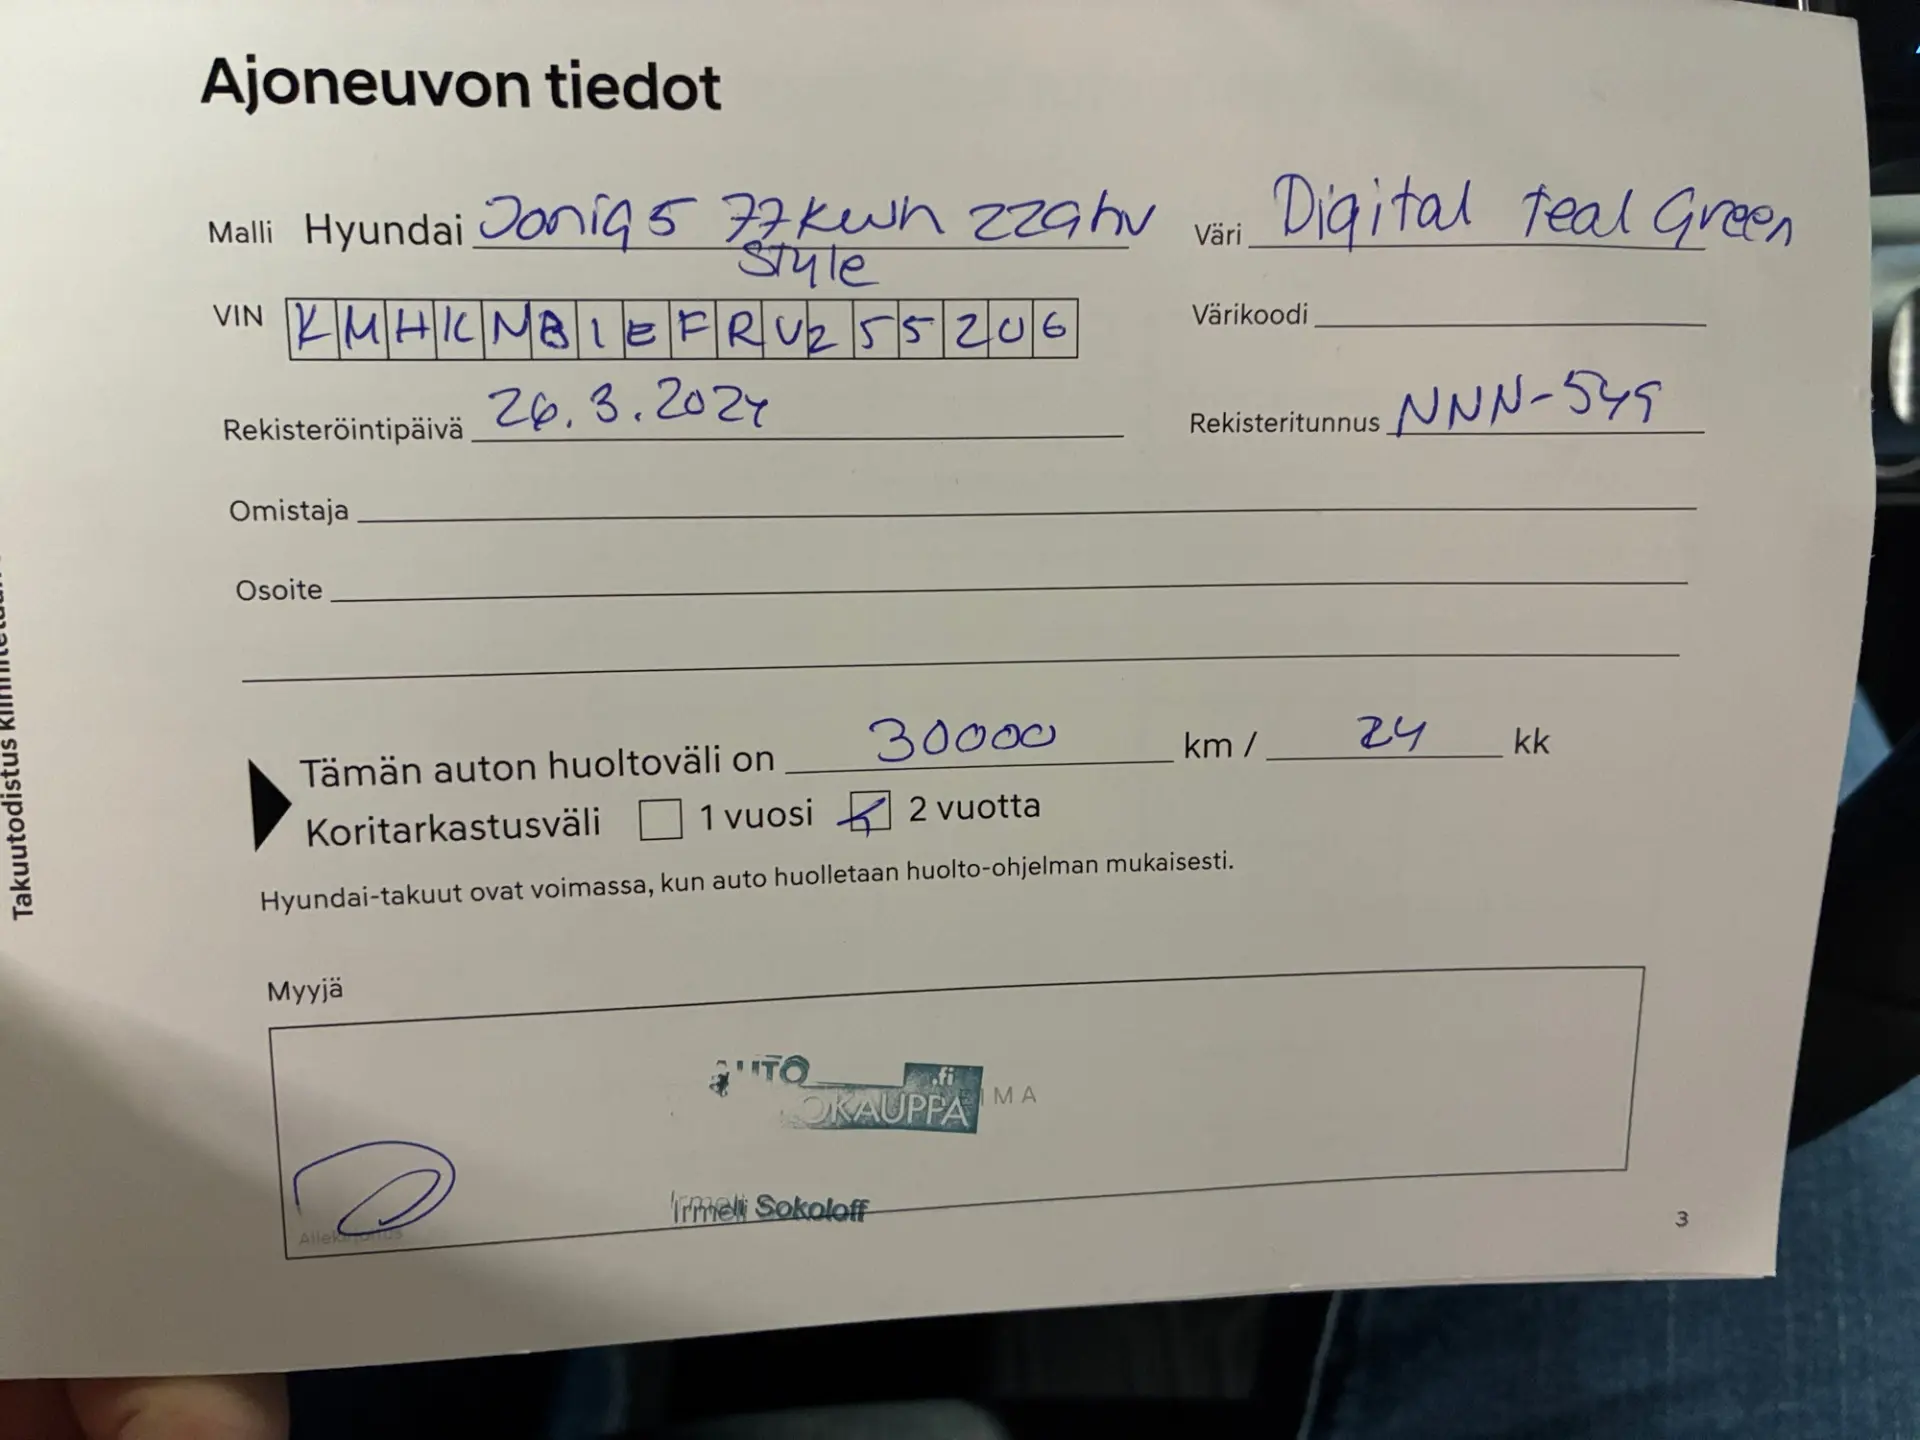 Ajoneuvon tiedot
Malli Hyundai Ioniq 5 77kwh 229hv
Style
Väri Digital teal Green
VIN KMHKNB1EFRU255206
Värikoodi
Rekisteröintipäivä 26.3.2024
Rekisteritunnus NNN-549
Omistaja
Osoite
Tämän auton huoltoväli on 30000 km / 24 kk
Koritarkastusväli 1 vuosi 2 vuotta
Hyundai-takuut ovat voimassa, kun auto huolletaan huolto-ohjelman mukaisesti.
Myyjä
AUTO
.fi
OKAUPPA
Irmeli Sokoloff
Allekirjoitus
3
Takuutodistus